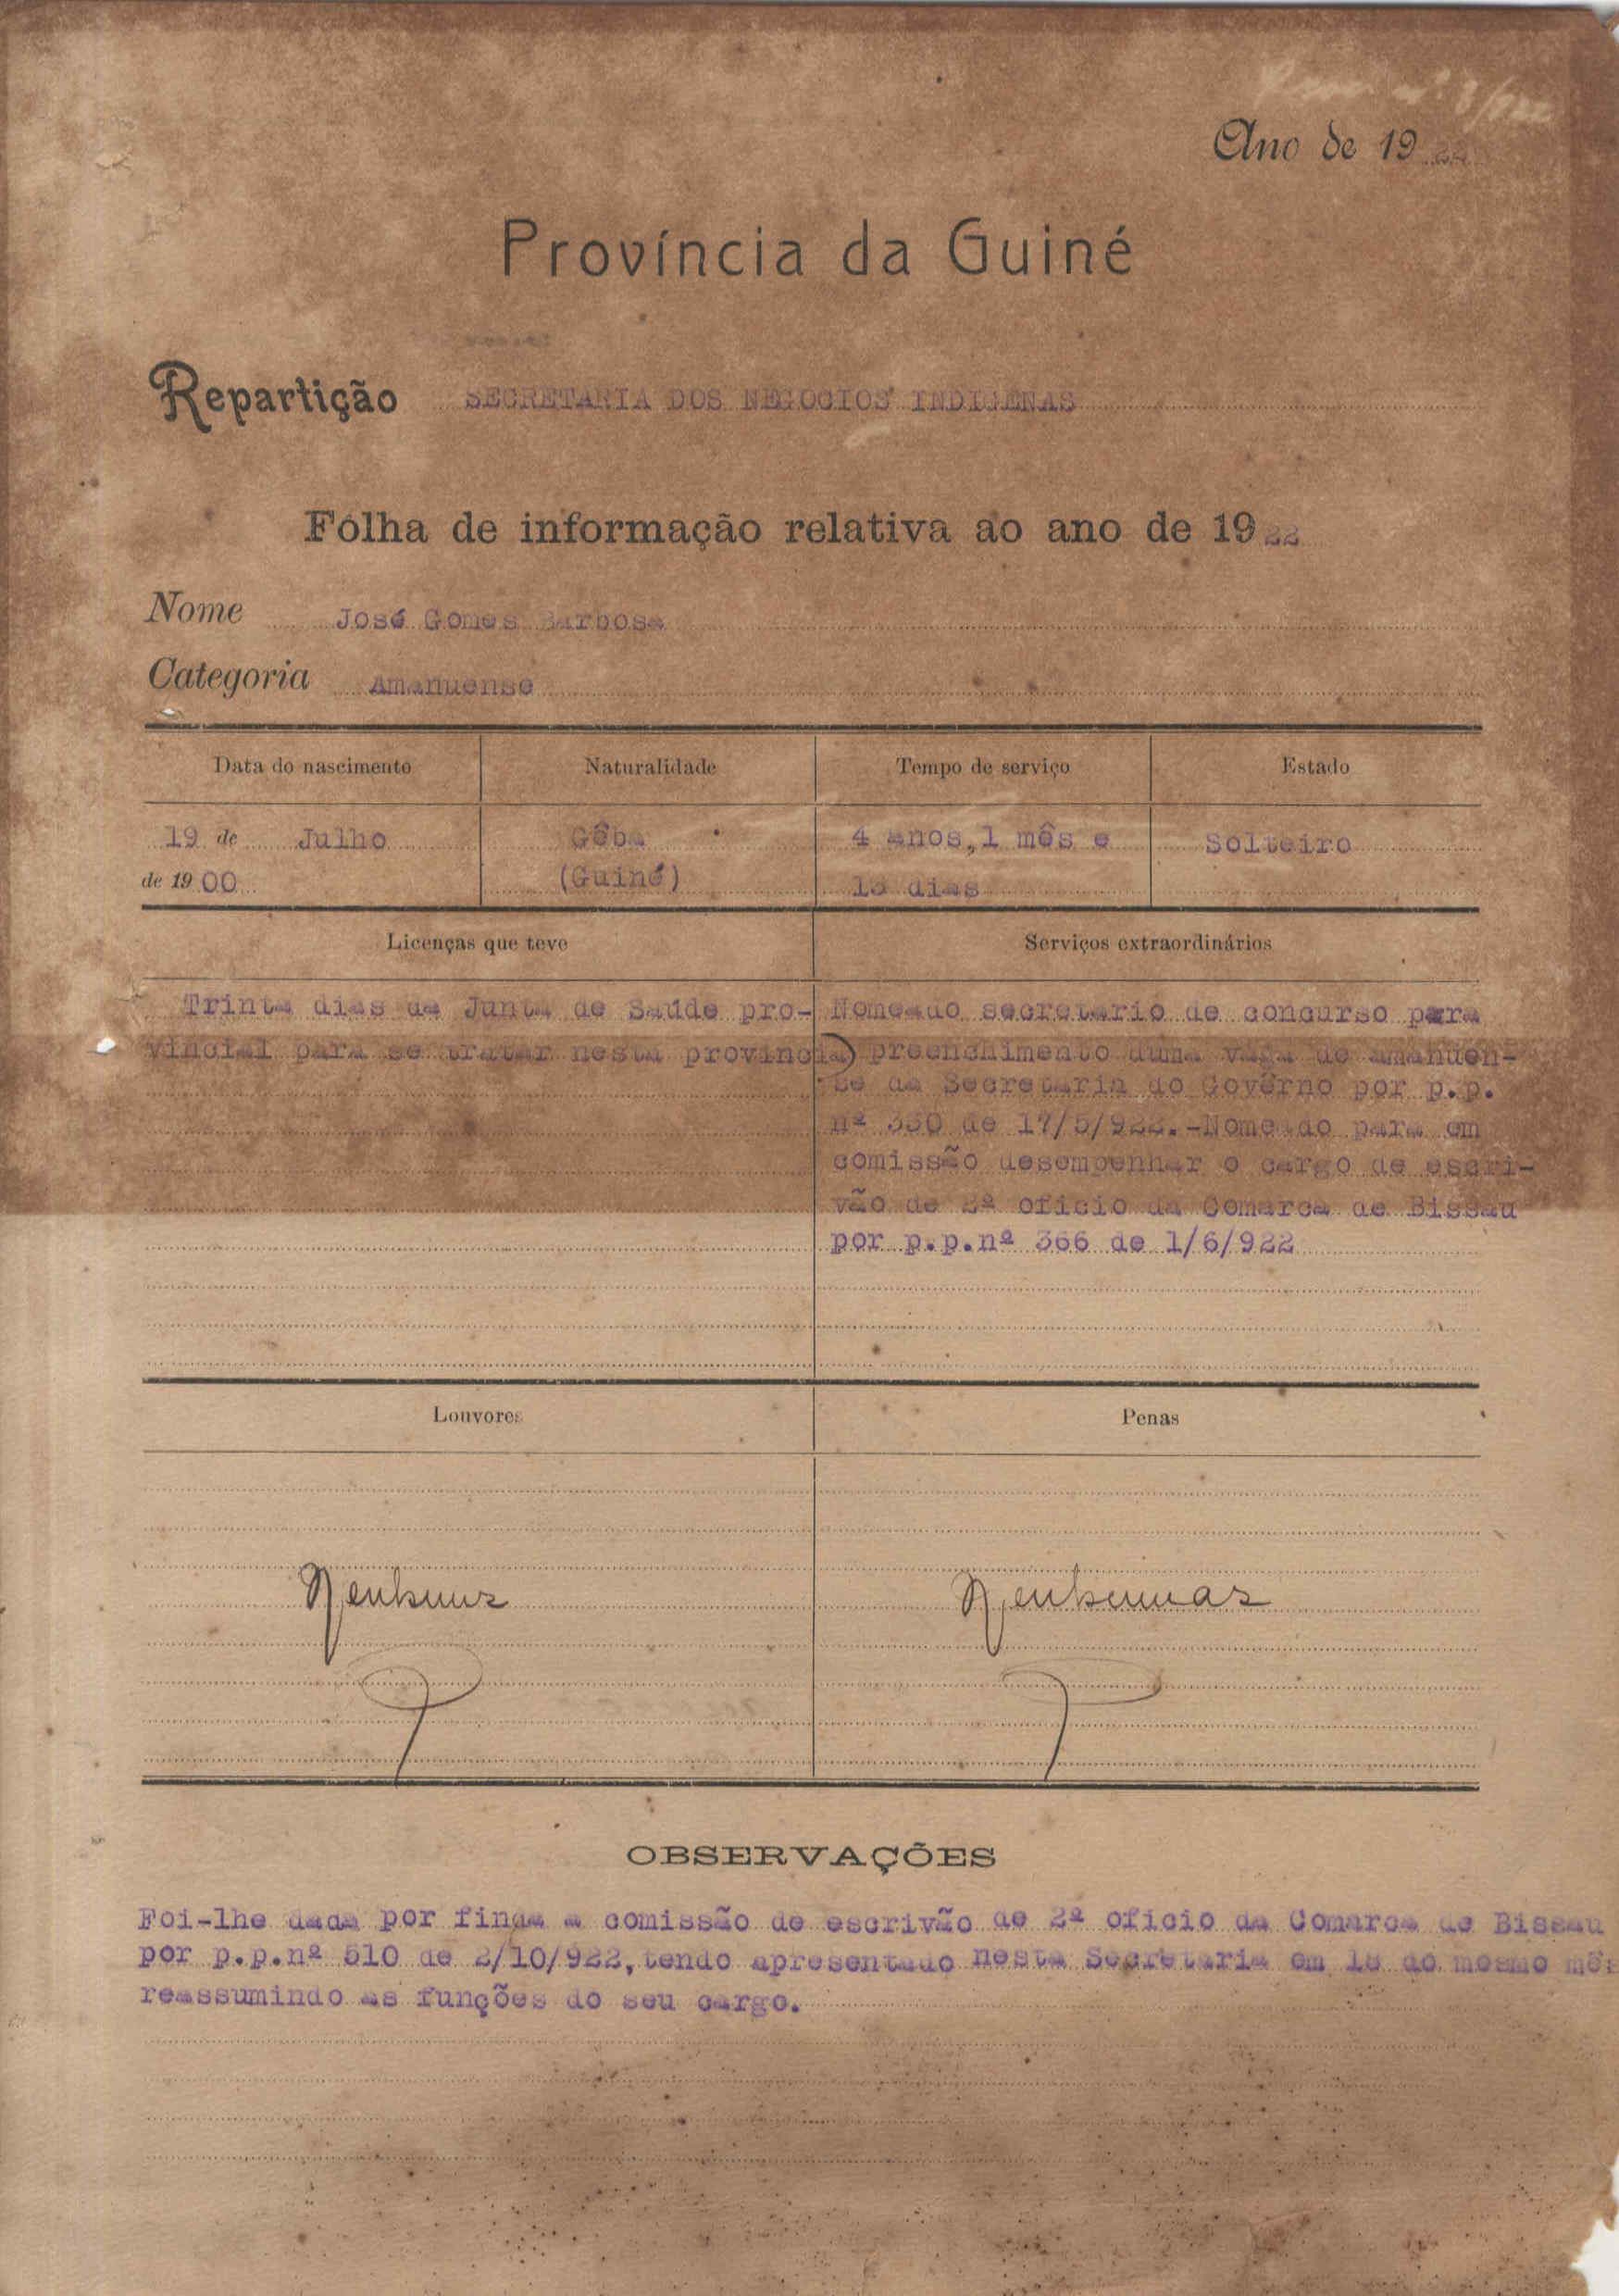 nº 8/922
Ano de 1922
Província da Guiné
Repartição SECRETARIA DOS NEGOCIOS INDIGENAS
Fôlha de informação relativa ao ano de 1922
Nome José Gomes Barbosa
Categoria Amanuense
Data do nascimento Naturalidade Tempo de serviço Estado
19 de Julho Gêba 4 anos,1 mês e Solteiro
de 1900 (Guiné) dias
Licenças que teve Serviços extraordinários
Trinta dias da Junta de Saúde pro- Nomeado secretario de concurso para
vincial para se tratar nesta provincia) preenchimento duma vaga de amanuen-
se da Secretaria do Govêrno por p.p.
nº 330 de 17/5/922.-Nomeado para em
comissão desempenhar o cargo de escri-
vão de 2º oficio da Comarca de Bissau
por p.p.nº 366 de 1/6/922
Louvores Penas
Nenhuns Nenhumas
OBSERVAÇÕES
Foi-lhe dada por finda a comissão de escrivão de 2º oficio da Comarca de Bissau
por p.p.nº 510 de 2/10/922,tendo apresentado nesta Secretaria em do mesmo mês
reassumindo as funções do seu cargo.